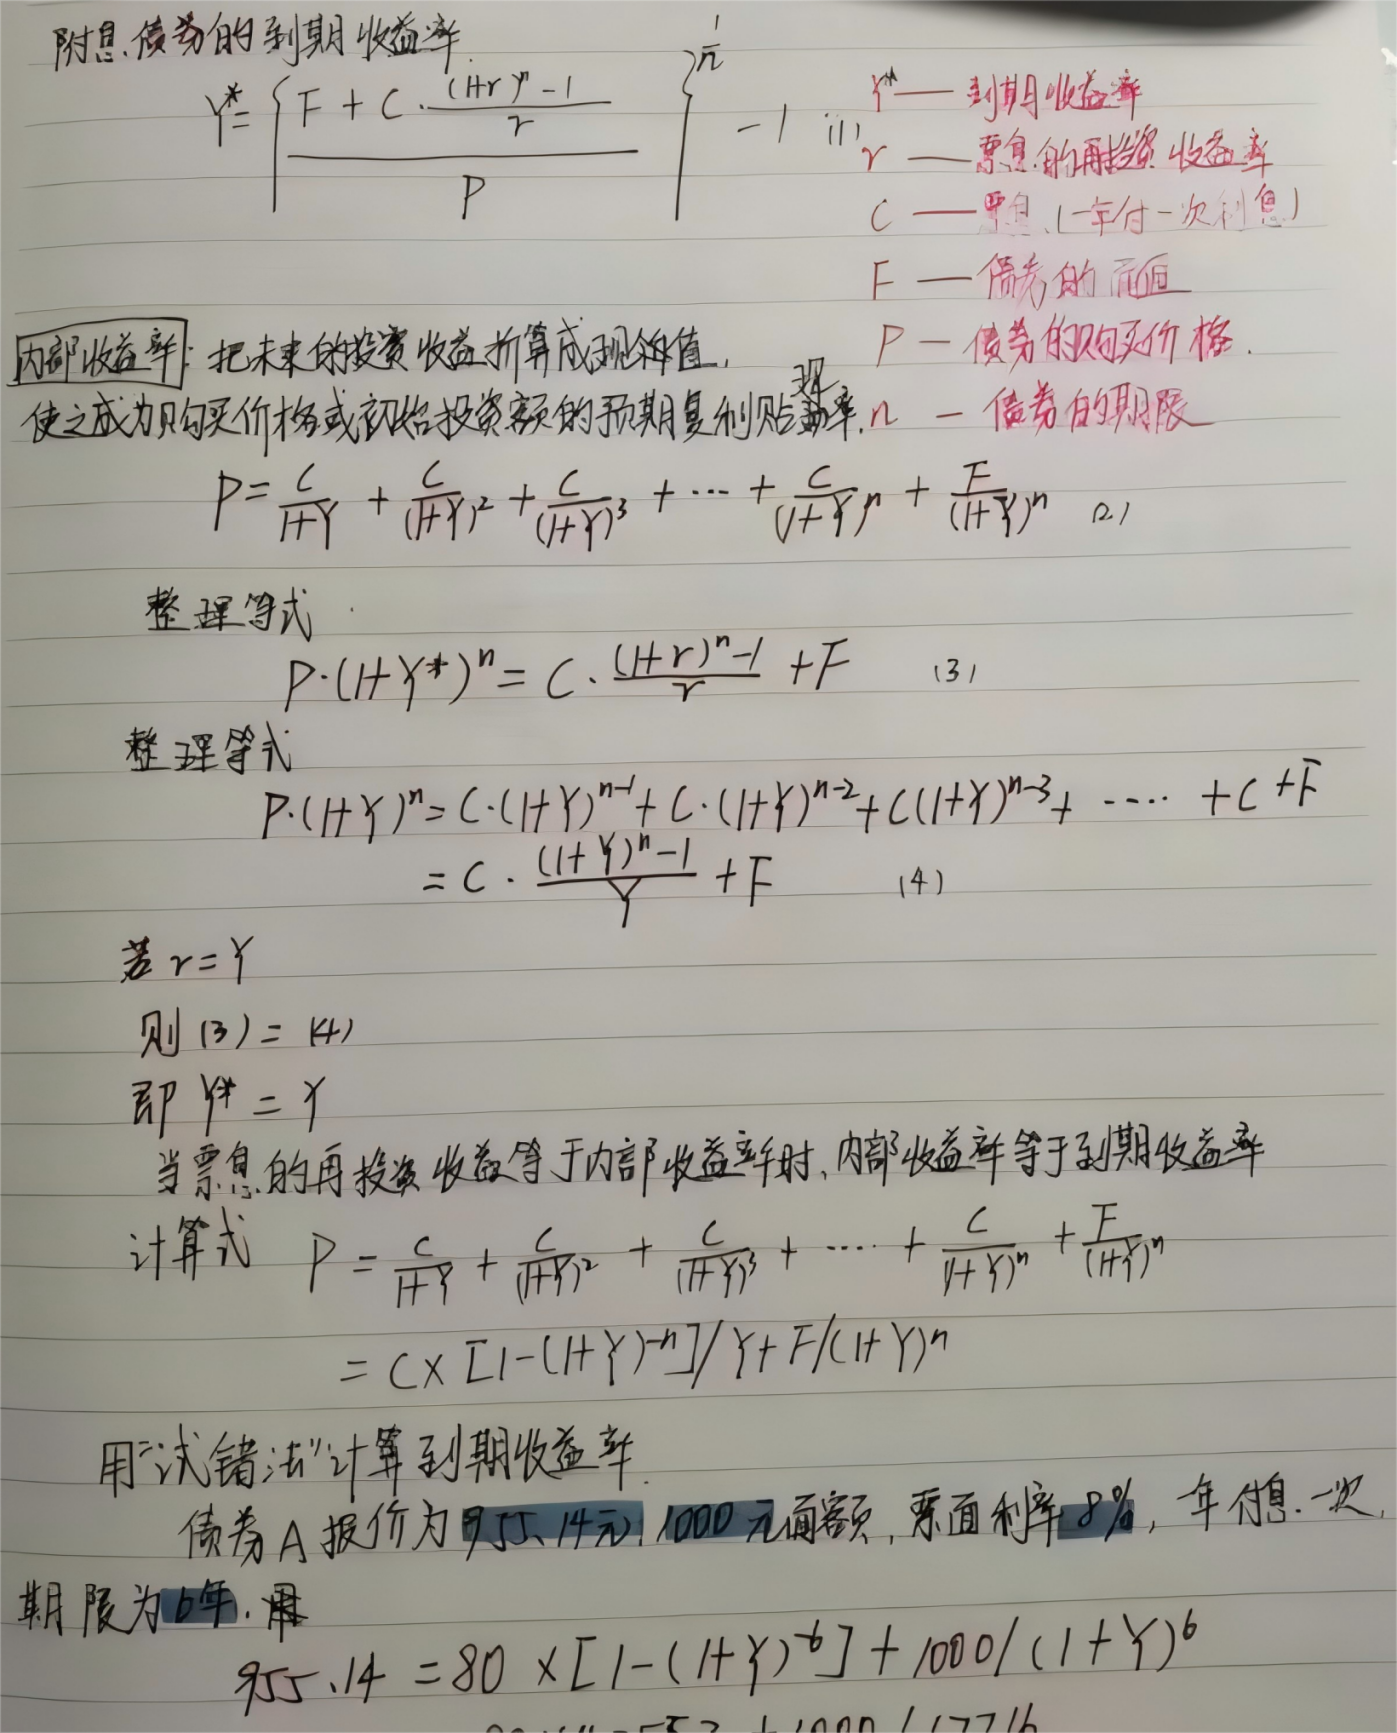 附息债券的到期收益率
Y* = { (F + C · ((1+r)^n - 1) / r) / P }^(1/n) - 1 (1)
Y* — 到期收益率
r — 票息的再投资收益率
C — 票息(一年付一次利息)
F — 债券的面值
P — 债券的购买价格.
n — 债券的期限
内部收益率: 把未来的投资收益折算成现值,
使之成为购买价格或初始投资额的预期复利贴现率.
P = C/(1+Y) + C/(1+Y)^2 + C/(1+Y)^3 + ... + C/(1+Y)^n + F/(1+Y)^n (2)
整理等式
P·(1+Y*)^n = C · ((1+r)^n - 1)/r + F (3)
整理等式
P·(1+Y)^n = C·(1+Y)^(n-1) + C·(1+Y)^(n-2) + C(1+Y)^(n-3) + ···· + C + F
= C · ((1+Y)^n - 1)/Y + F (4)
若 r = Y
则 (3) = (4)
即 Y* = Y
当票息的再投资收益等于内部收益率时, 内部收益率等于到期收益率
计算式 P = C/(1+Y) + C/(1+Y)^2 + C/(1+Y)^3 + ···· + C/(1+Y)^n + F/(1+Y)^n
= C × [1-(1+Y)^-n]/Y + F/(1+Y)^n
用“试错法”计算到期收益率.
债券A报价为955.14元, 1000元面额, 票面利率8%, 一年付息一次,
期限为6年.
955.14 = 80 × [1-(1+Y)^-6] + 1000/(1+Y)^6